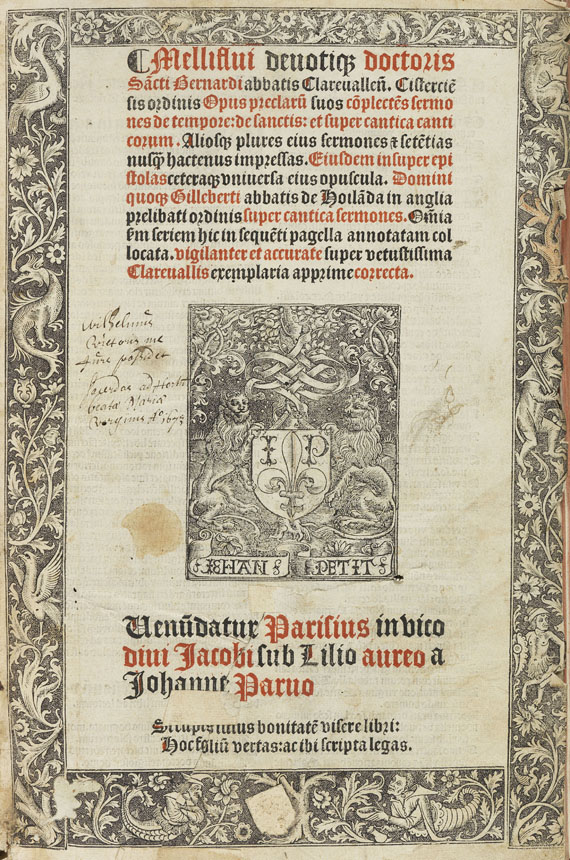 ¶ Melliflui deuotiqꝫ doctoris
Sācti Bernardi abbatis Clareualleñ. Cisterciē
sis ordinis Opus preclarū suos cōplectēs sermo
nes de tempore: de sanctis: et super cantica canti
corum. Aliosqꝫ plures eius sermones ⁊ sētētias
nusq̄ hactenus impressas. Eiusdem insuper epi
stolas ceteraqꝫ vniuersa eius opuscula. Domini
quoqꝫ Gilleberti abbatis de Hoilāda in anglia
prelibati ordinis super cantica sermones. Om̄ia
ẜm seriem hic in sequēti pagella annotatam col
locata. vigilanter et accurate super vetustissima
Clareuallis exemplaria apprime correcta.
Wilhelmus
me
possidet
Sacerdos ad
beatæ Maria
Virginis
I P
IEHAN PETIT
Uenūdatur Parisius in vico
diui Jacobi sub Lilio aureo a
Johanne Paruo
bonitatē visere libri:
Hoc vertas: ac ibi scripta legas.